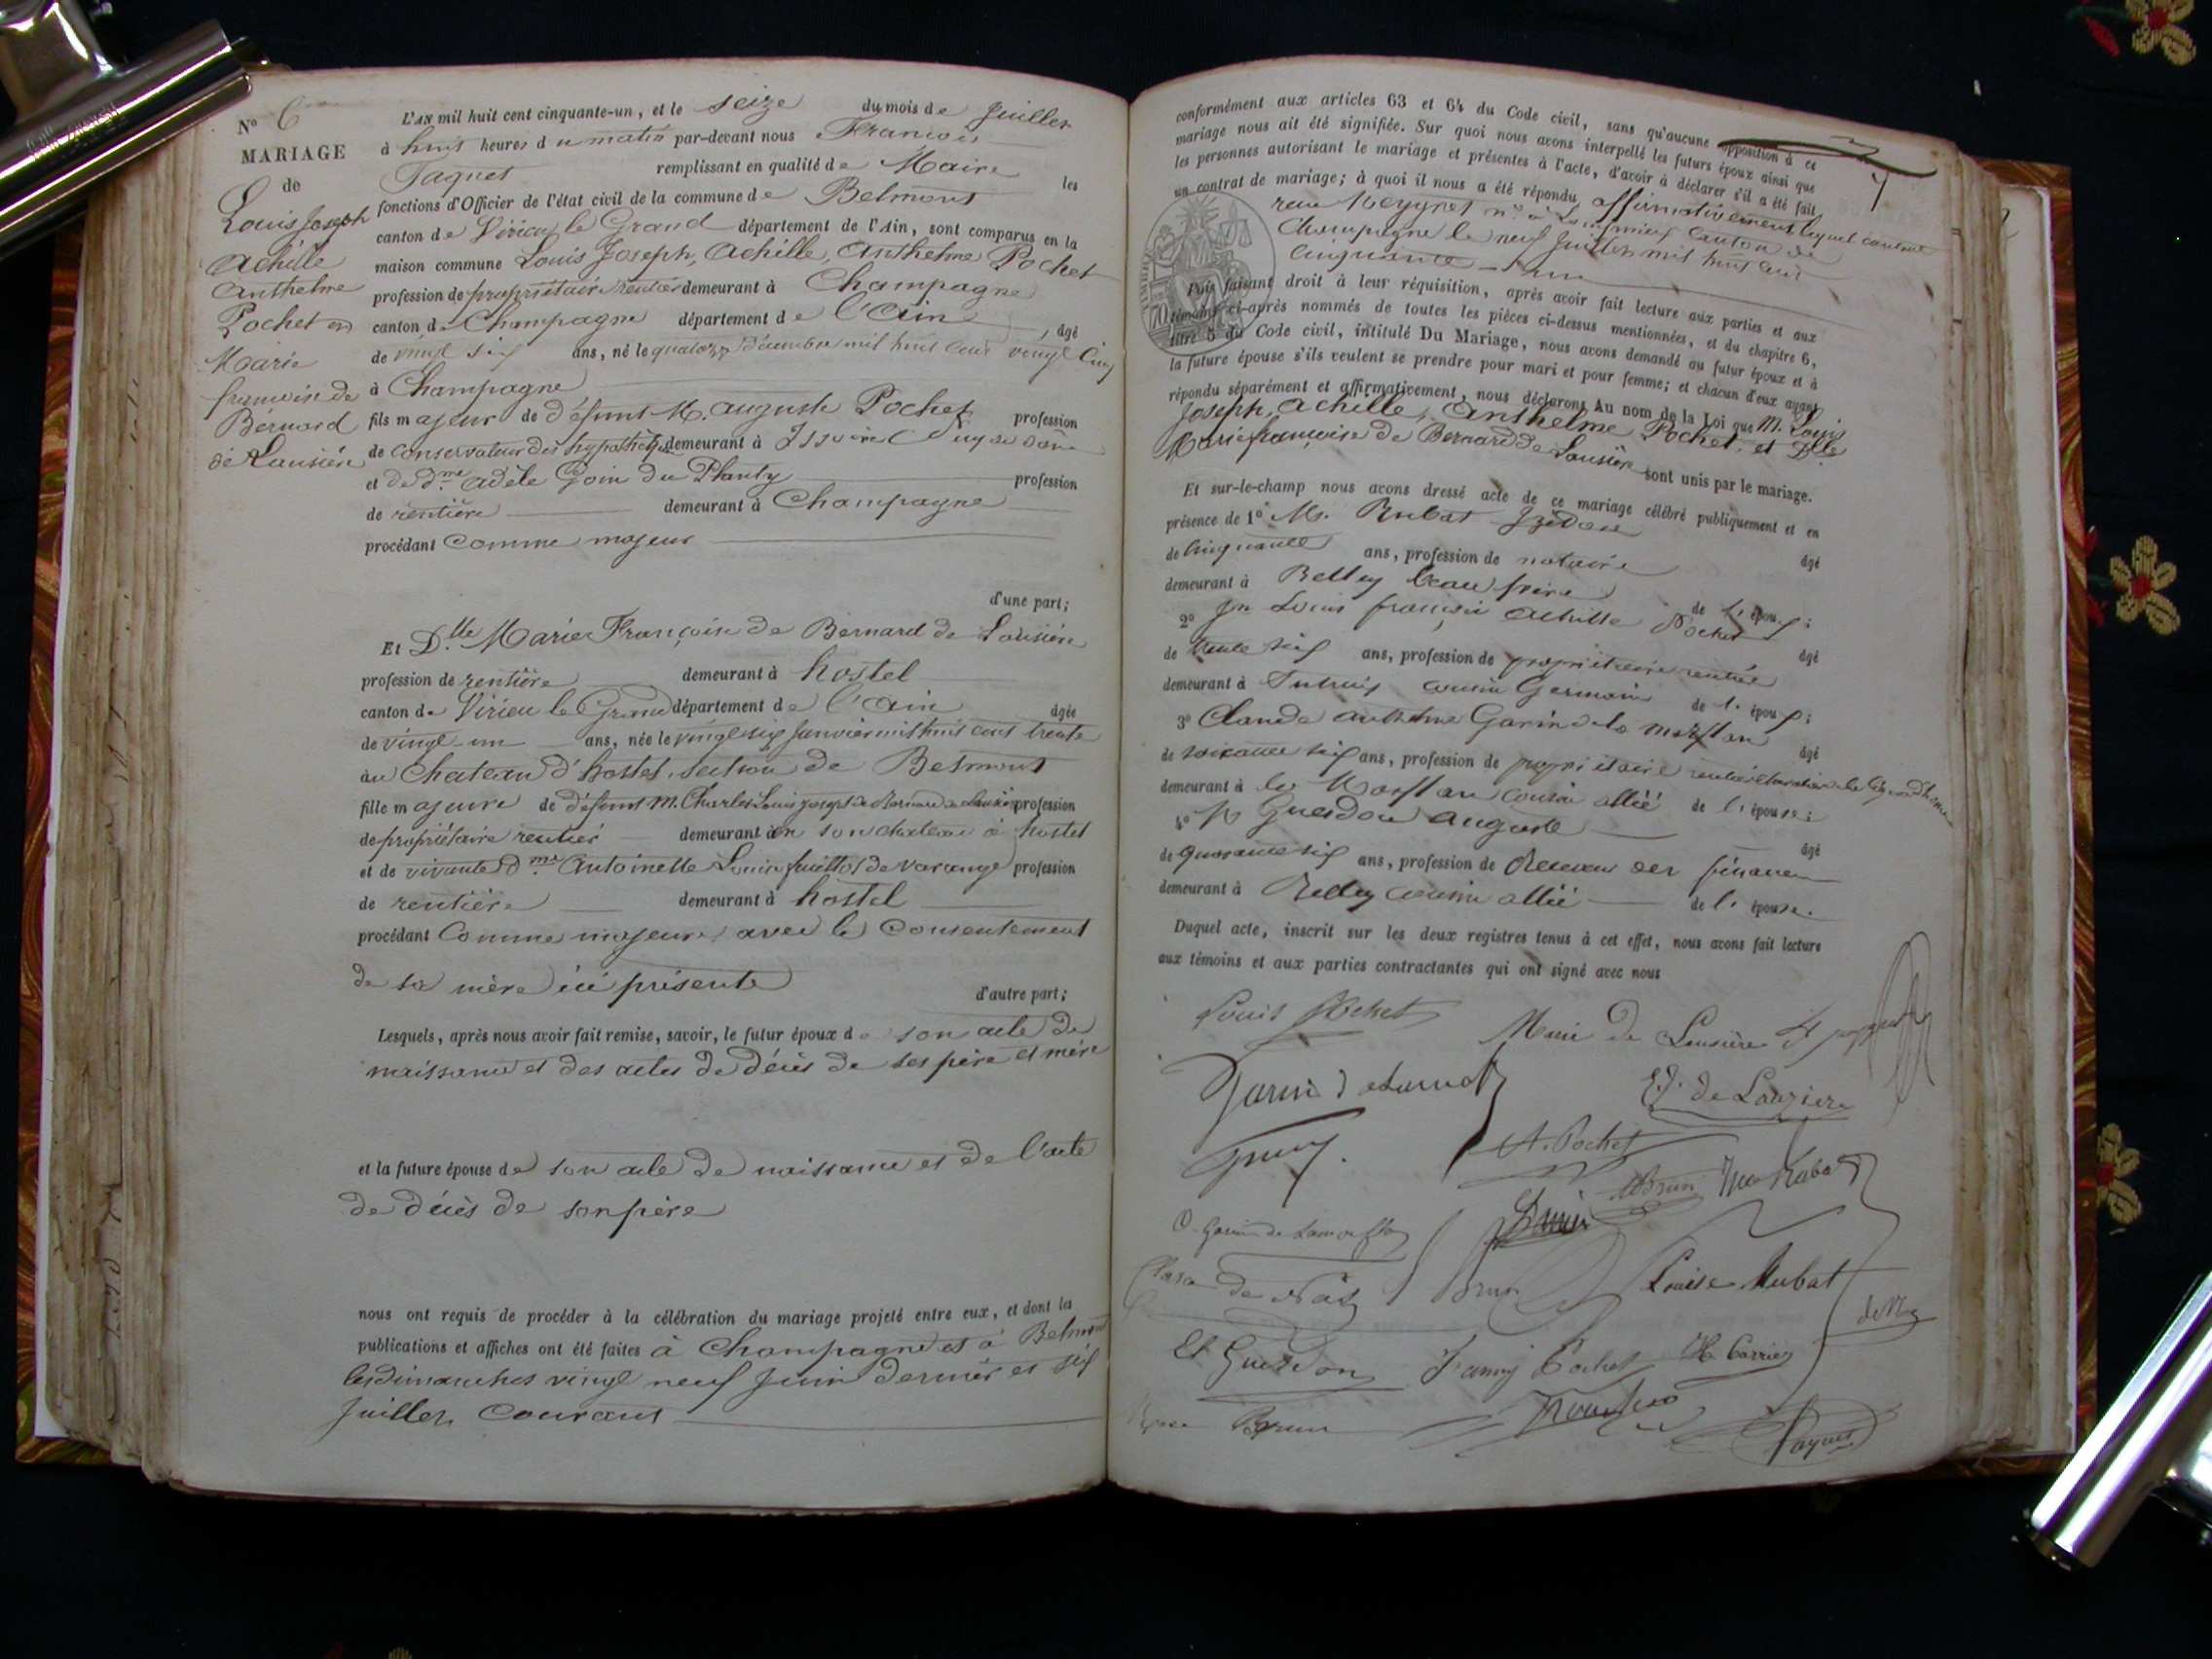 N° 6
MARIAGE
de
Louis Joseph
Achille
Anthelme
Pochet et
Marie
françoise de
Bernard
de Lausière
L'AN mil huit cent cinquante-un, et le seize du mois de juillet
à huit heures du matin par-devant nous François
Taquet remplissant en qualité de Maire les
fonctions d'Officier de l'état civil de la commune de Belmont
canton de Virieu le Grand département de l'Ain, sont comparus en la
maison commune Louis Joseph, Achille, Anthelme Pochet
profession de propriétaire rentier demeurant à Champagne
canton de Champagne département de l'Ain, âgé
de vingt six ans, né le quatorze décembre mil huit cent vingt cinq
à Champagne
fils majeur de défunt M. auguste Pochet profession
de conservateur des hypothèques demeurant à Issoire
et de d.me adèle Goin du Planty profession
de rentière demeurant à Champagne
procédant comme majeur
d'une part;
Et D.lle Marie Françoise de Bernard de Lausière
profession de rentière demeurant à hostel
canton de Virieu le Grand département de l'Ain âgée
de vingt-un ans, née le vingt six janvier mil huit cent trente
au Chateau d'hostel, section de Belmont
fille majeure de défunt M. Charles Louis Joseph de Bernard de Lausière profession
de propriétaire rentier demeurant en son chateau à hostel
et de vivante d.me Antoinette Louise de Varange profession
de rentière demeurant à hostel
procédant Comme majeure, avec le Consentement
de sa mère ici présente
d'autre part;
Lesquels, après nous avoir fait remise, savoir, le futur époux de son acte de
naissance et des actes de décès de ses père et mère
et la future épouse de son acte de naissance et de l'acte
de décès de son père
nous ont requis de procéder à la célébration du mariage projeté entre eux, et dont les
publications et affiches ont été faites à Champagne et à Belmont
les dimanches vingt neuf Juin dernier et six
Juillet Courant
conformément aux articles 63 et 64 du Code civil, sans qu'aucune opposition à ce
mariage nous ait été signifiée. Sur quoi nous avons interpellé les futurs époux ainsi que
les personnes autorisant le mariage et présentes à l'acte, d'avoir à déclarer s'il a été fait
un contrat de mariage; à quoi il nous a été répondu affirmativement
canton de
Champagne le neuf Juillet mil huit cent
cinquante-un
Puis faisant droit à leur réquisition, après avoir fait lecture aux parties et aux
témoins ci-après nommés de toutes les pièces ci-dessus mentionnées, et du chapitre 6,
titre 5 du Code civil, intitulé Du Mariage, nous avons demandé au futur époux et à
la future épouse s'ils veulent se prendre pour mari et pour femme; et chacun d'eux ayant
répondu séparément et affirmativement, nous déclarons Au nom de la Loi que M. Louis
Joseph, Achille, Anthelme Pochet, et Dlle
Marie françoise de Bernard de Lausière sont unis par le mariage.
Et sur-le-champ nous avons dressé acte de ce mariage célébré publiquement et en
présence de 1° M. Rubat Isidore âgé
de Cinquante ans, profession de notaire
demeurant à Belley beau frère de l'époux;
2° Louis françois Achille Pochet âgé
de trente six ans, profession de propriétaire rentier
demeurant à cousin Germain de l'époux;
3° Claude Anthelme Garin de la âgé
de soixante six ans, profession de propriétaire rentier
demeurant à cousin allié de l'épouse;
4° M Guesdon Auguste âgé
de quarante six ans, profession de Receveur des finances
demeurant à Belley cousin allié de l'épouse.
Duquel acte, inscrit sur les deux registres tenus à cet effet, nous avons fait lecture
aux témoins et aux parties contractantes qui ont signé avec nous
Louis Pochet
Marie de Lausière
de Lauzière
A. Pochet
Brun
Clara de
Brun
Louise Rubat
Guesdon
Fanny Pochet
Brun
Taquet